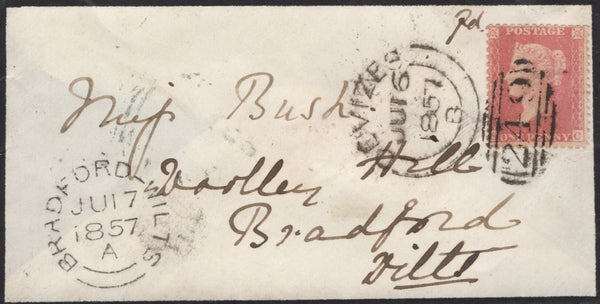 pd
POSTAGE
ONE PENNY
C
219
DEVIZES
JU16
1857
B
Miss Bush
Woolley Hill
Bradford
Wilts
BRADFORD WILTS
JU17
1857
A